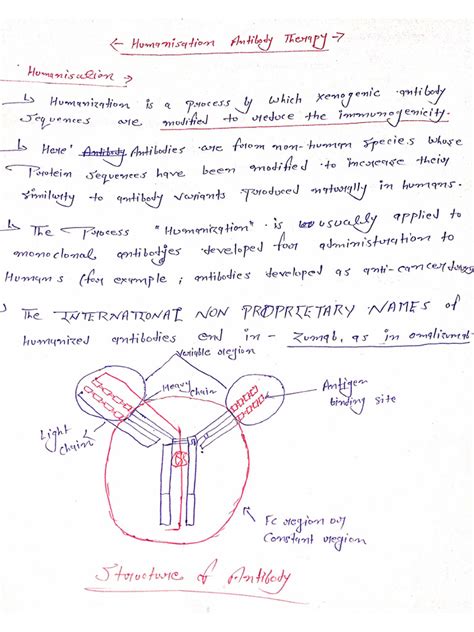 ← Humanisation Antibody Therapy →
Humanisation →
↳ Humanization is a process by which xenogenic antibody
sequences are modified to reduce the immunogenicity.
↳ Here Antibodies are from non-human species whose
Protein sequences have been modified to increase their
similarity to antibody variants produced naturally in humans.
↳ The Process "Humanization" is usually applied to
monoclonal antibodies developed for administration to
Humans (for example; antibodies developed as anti-cancer drugs
The INTERNATIONAL NON PROPRIETARY NAMES of
humanized antibodies end in - Zumab, as in omalizumab
Variable region
Heavy
Chain
Antigen
binding site
Light
Chain
FC region or
Constant region
Structure of Antibody